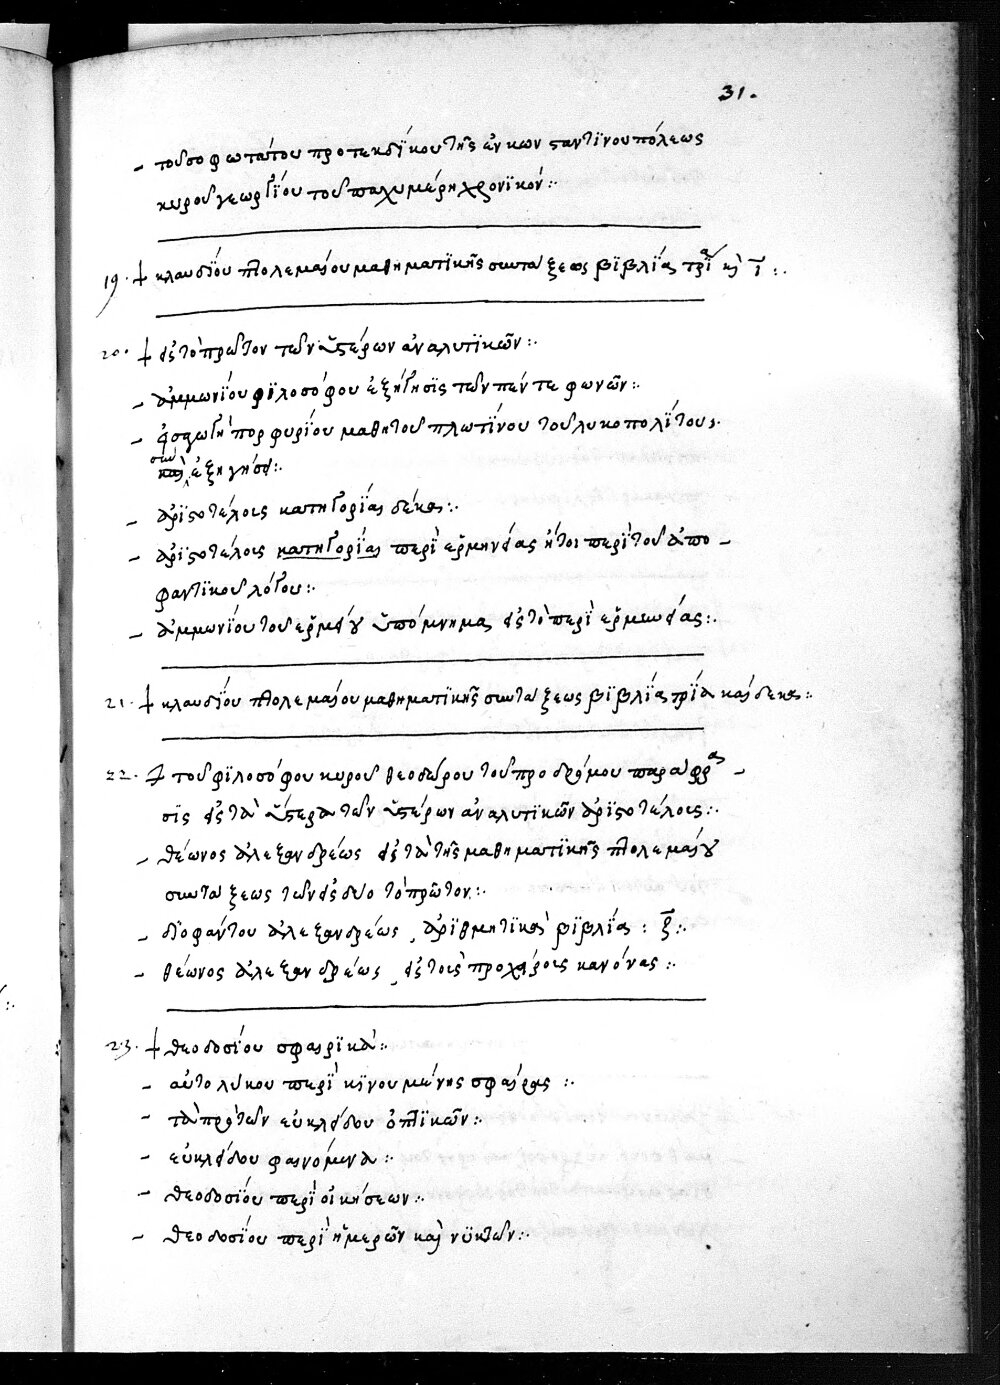 31.
- τοῦ σοφωτάτου πρωτεκδΐκου τῆς ἐν κωνσταντϊνουπόλεως
κυροῦ γεωργΐου τοῦ παχυμέρη χρονϊκόν:·
19. + κλαυδΐου πτολεμαίου μαθηματϊκῆς συντάξεως βϊβλΐα τρΐα κὶ ῑ:.
20. + εἰς τὸ πρῶτον τῶν ὑστέρων ἀναλυτϊκῶν:·
- ἀμμωνΐου φϊλοσόφου ἐξήγησϊς τῶν πέντε φωνῶν:·
- εἰσαγωγὴ πορφυρΐου μαθητοῦ πλωτΐνου τοῦ λυκοπολΐτου:·
σὺν ἐξηγήσει:·
- ἀρϊστοτέλους κατηγορΐαι δέκα:·
- ἀρϊστοτέλους κατηγορΐαι περὶ ἑρμηνείας ἤτοι περὶ τοῦ ἀπο-
φαντϊκοῦ λόγου:·
- ἀμμωνΐου τοῦ ἑρμείου ὑπόμνημα εἰς τὸ περὶ ἑρμηνείας:.
21. + κλαυδΐου πτολεμαίου μαθηματϊκῆς συντάξεως βϊβλΐα τρΐα καὶ δέκα:·
22. + τοῦ φϊλοσόφου κυροῦ θεοδώρου τοῦ προδρόμου παράφρα-
σϊς εἰς τὰ ὕστερα τῶν ὑστέρων ἀναλυτϊκῶν ἀρϊστοτέλους:.
- θέωνος ἀλεξανδρέως εἰς τὰ τῆς μαθηματϊκῆς πτολεμαίου
συντάξεως τῶν εἰς δύο τὸ πρῶτον:·
- δϊοφάντου ἀλεξανδρέως, ἀρϊθμητϊκὰ βϊβλΐα: ξ:.
- θέωνος ἀλεξανδρέως, εἰς τοὺς προχείρους κανόνας:·
23. + θεοδοσΐου σφαιρϊκὰ:·
- αὐτολύκου περὶ κϊνουμένης σφαίρας:·
- τὰ πρὸ τῶν εὐκλείδου ὀπτϊκῶν:·
- εὐκλείδου φαινόμενα:·
- θεοδοσΐου περὶ οἰκήσεων:·
- θεοδοσΐου περὶ ἡμερῶν καὶ νϋκτῶν:·